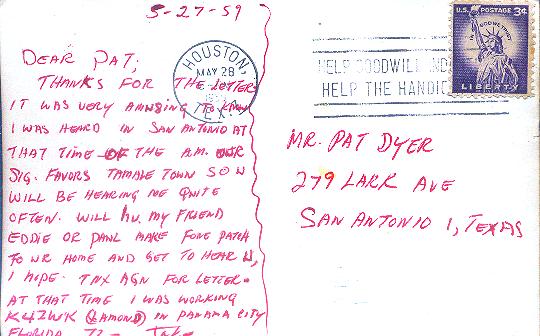 5-27-59
DEAR PAT;
THANKS FOR THE LETTER
IT WAS VERY AMUSING TO KNOW
I WAS HEARD IN SAN ANTONIO AT
THAT TIME OF THE A.M. OUR
SIG. FAVORS TAMALE TOWN SO U
WILL BE HEARING ME QUITE
OFTEN. WILL HV. MY FRIEND
EDDIE OR PAUL MAKE FONE PATCH
TO UR HOME AND GET TO HEAR U,
I HOPE. TNX AGN FOR LETTER.
AT THAT TIME I WAS WORKING
K4ZWK (LAMOND) IN PANAMA CITY
FLORIDA 73-
HOUSTON,
MAY 28
TEX.
HELP GOODWILL IND
HELP THE HANDIC
U.S. POSTAGE 3¢
IN GOD WE TRUST
LIBERTY
MR. PAT DYER
279 LARK AVE
SAN ANTONIO 1, TEXAS